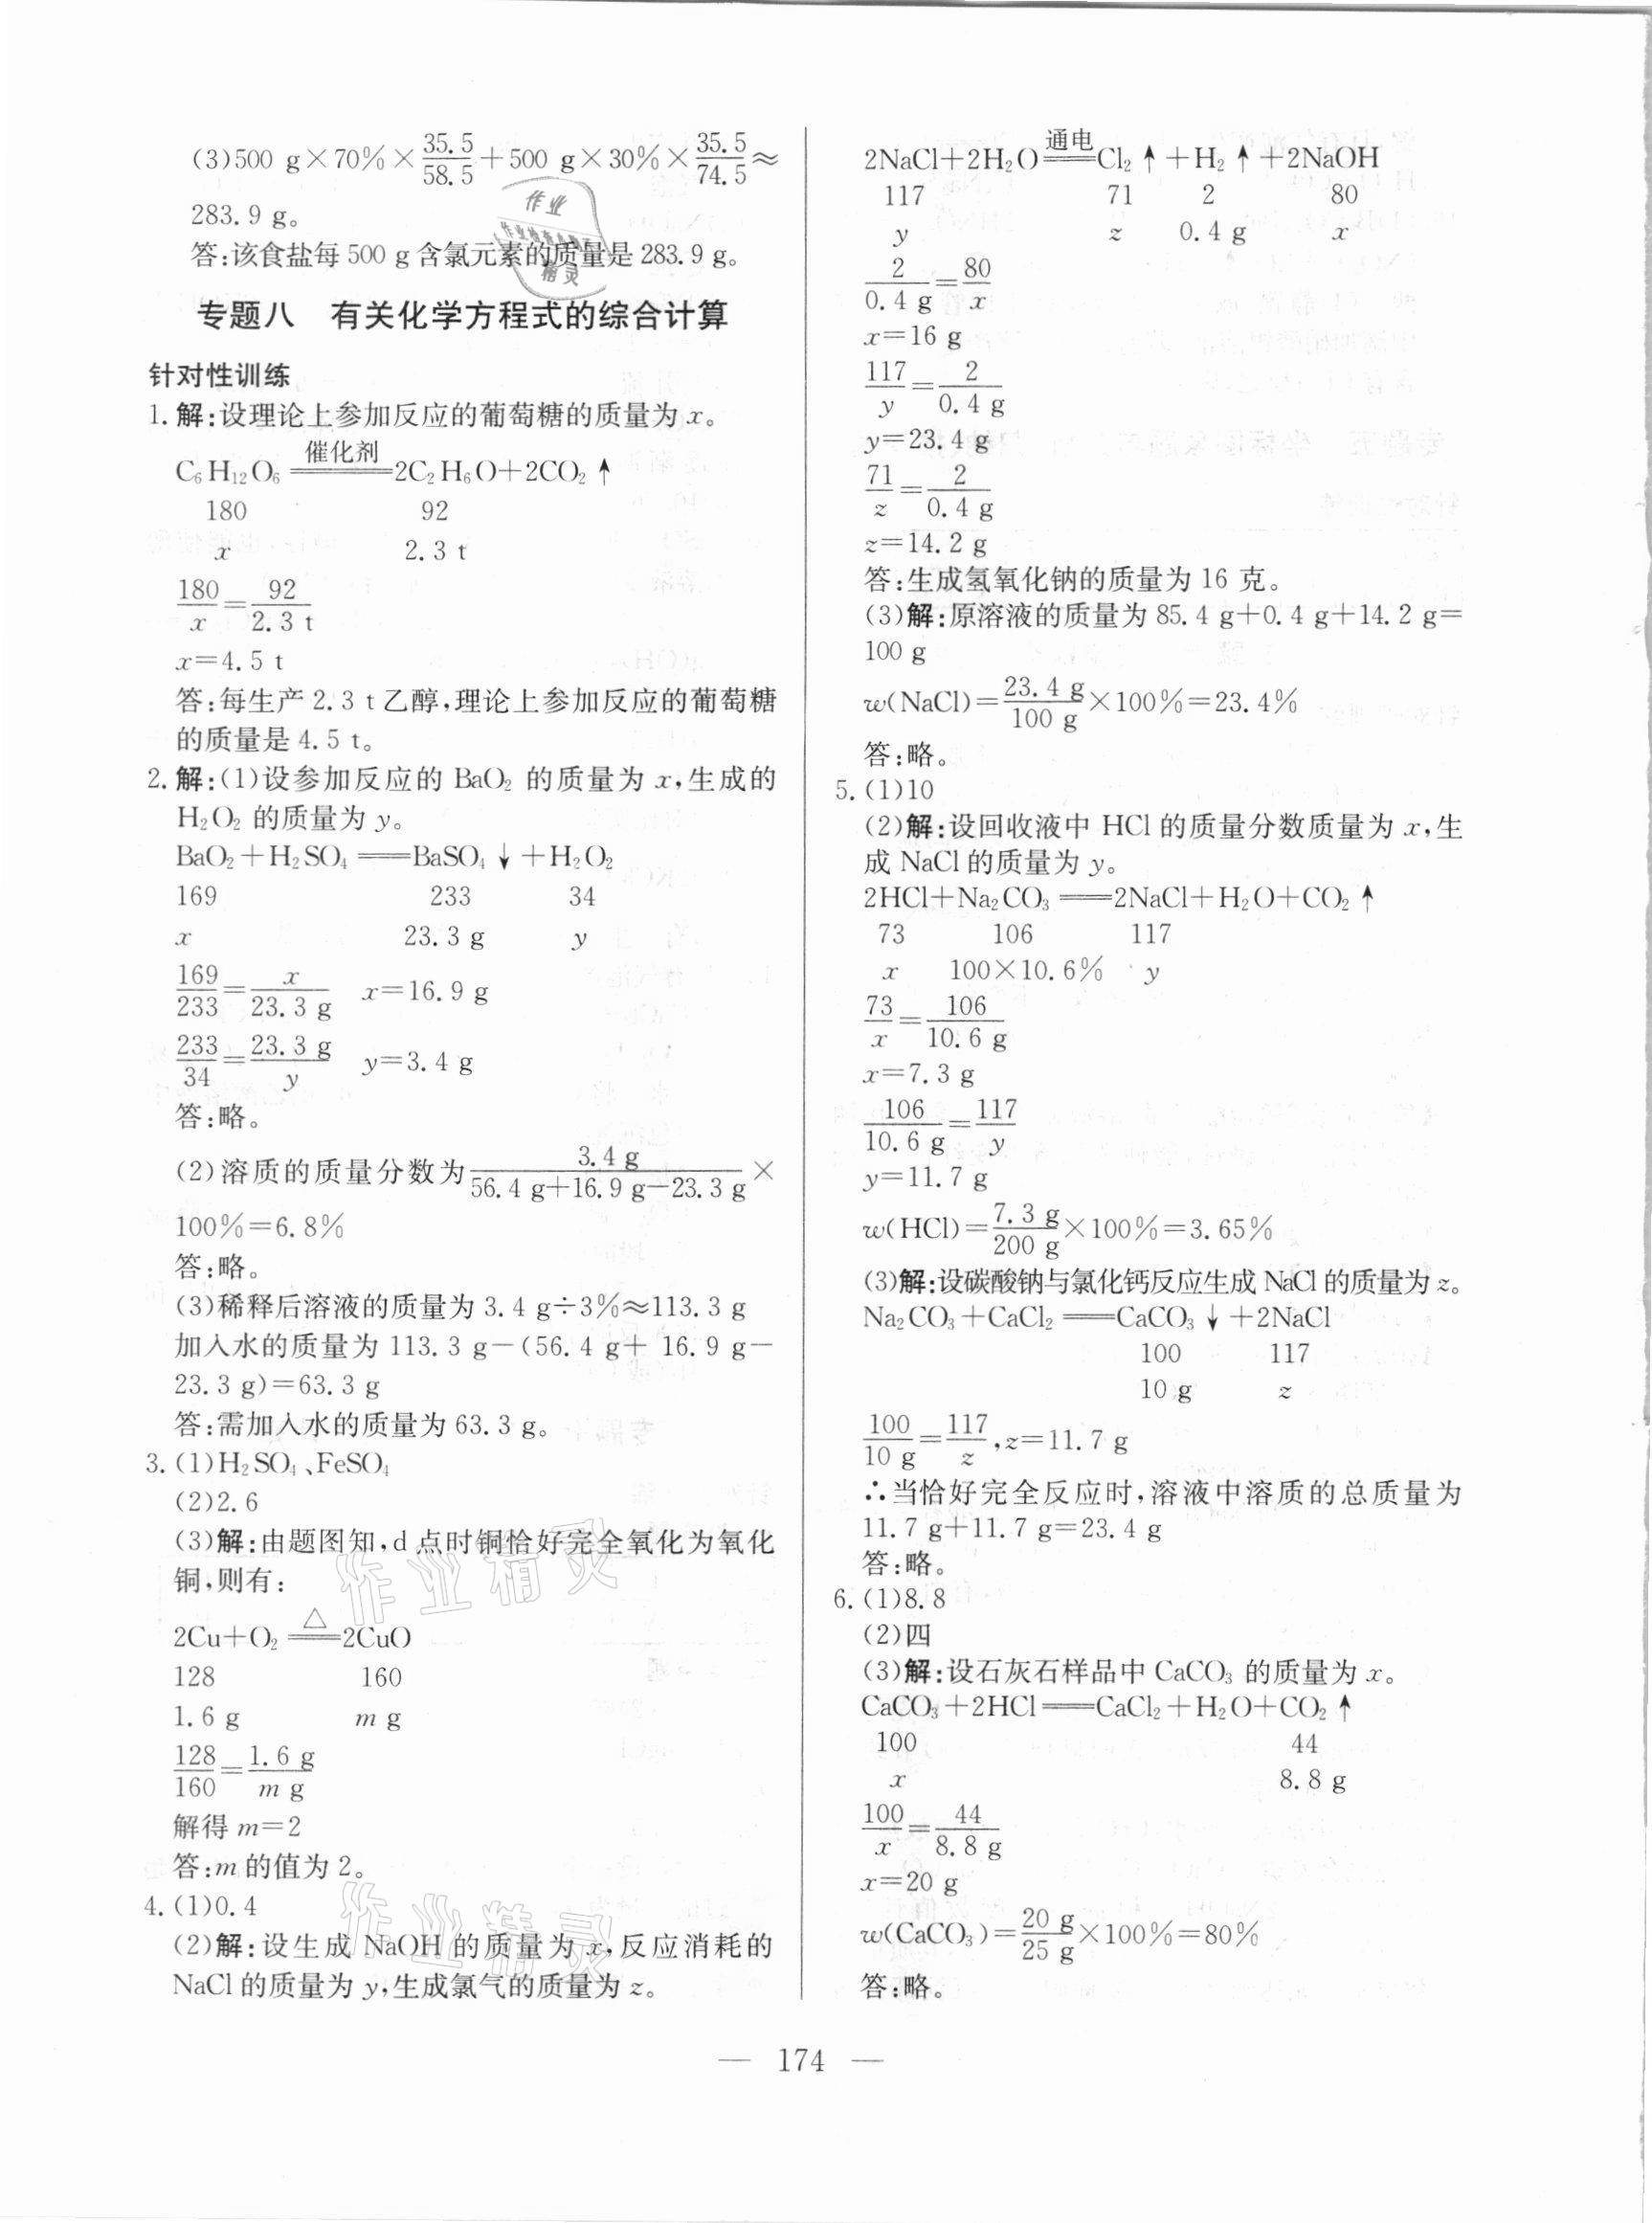 (3)500 g×70%×35.5/58.5+500 g×30%×35.5/74.5≈
283.9 g。
答:该食盐每500 g含氯元素的质量是283.9 g。
专题八 有关化学方程式的综合计算
针对性训练
1.解:设理论上参加反应的葡萄糖的质量为x。
C₆H₁₂O₆ ══催化剂══ 2C₂H₆O+2CO₂↑
180 92
x 2.3 t
180/x=92/2.3 t
x=4.5 t
答:每生产2.3 t乙醇,理论上参加反应的葡萄糖
的质量是4.5 t。
2.解:(1)设参加反应的BaO₂的质量为x,生成的
H₂O₂的质量为y。
BaO₂+H₂SO₄══BaSO₄↓+H₂O₂
169 233 34
x 23.3 g y
169/233=x/23.3 g x=16.9 g
233/34=23.3 g/y y=3.4 g
答:略。
(2)溶质的质量分数为3.4 g/(56.4 g+16.9 g−23.3 g)×
100%=6.8%
答:略。
(3)稀释后溶液的质量为3.4 g÷3%≈113.3 g
加入水的质量为113.3 g−(56.4 g+16.9 g−
23.3 g)=63.3 g
答:需加入水的质量为63.3 g。
3.(1)H₂SO₄、FeSO₄
(2)2.6
(3)解:由题图知,d点时铜恰好完全氧化为氧化
铜,则有:
2Cu+O₂══△══2CuO
128 160
1.6 g m g
128/160=1.6 g/m g
解得m=2
答:m的值为2。
4.(1)0.4
(2)解:设生成NaOH的质量为x,反应消耗的
NaCl的质量为y,生成氯气的质量为z。
2NaCl+2H₂O══通电══Cl₂↑+H₂↑+2NaOH
117 71 2 80
y z 0.4 g x
2/0.4 g=80/x
x=16 g
117/y=2/0.4 g
y=23.4 g
71/z=2/0.4 g
z=14.2 g
答:生成氢氧化钠的质量为16克。
(3)解:原溶液的质量为85.4 g+0.4 g+14.2 g=
100 g
w(NaCl)=23.4 g/100 g×100%=23.4%
答:略。
5.(1)10
(2)解:设回收液中HCl的质量分数质量为x,生
成NaCl的质量为y。
2HCl+Na₂CO₃══2NaCl+H₂O+CO₂↑
73 106 117
x 100×10.6% y
73/x=106/10.6 g
x=7.3 g
106/10.6 g=117/y
y=11.7 g
w(HCl)=7.3 g/200 g×100%=3.65%
(3)解:设碳酸钠与氯化钙反应生成NaCl的质量为z。
Na₂CO₃+CaCl₂══CaCO₃↓+2NaCl
100 117
10 g z
100/10 g=117/z,z=11.7 g
∴当恰好完全反应时,溶液中溶质的总质量为
11.7 g+11.7 g=23.4 g
答:略。
6.(1)8.8
(2)四
(3)解:设石灰石样品中CaCO₃的质量为x。
CaCO₃+2HCl══CaCl₂+H₂O+CO₂↑
100 44
x 8.8 g
100/x=44/8.8 g
x=20 g
w(CaCO₃)=20 g/25 g×100%=80%
答:略。
— 174 —
作业
精灵
作业精灵
作业精灵